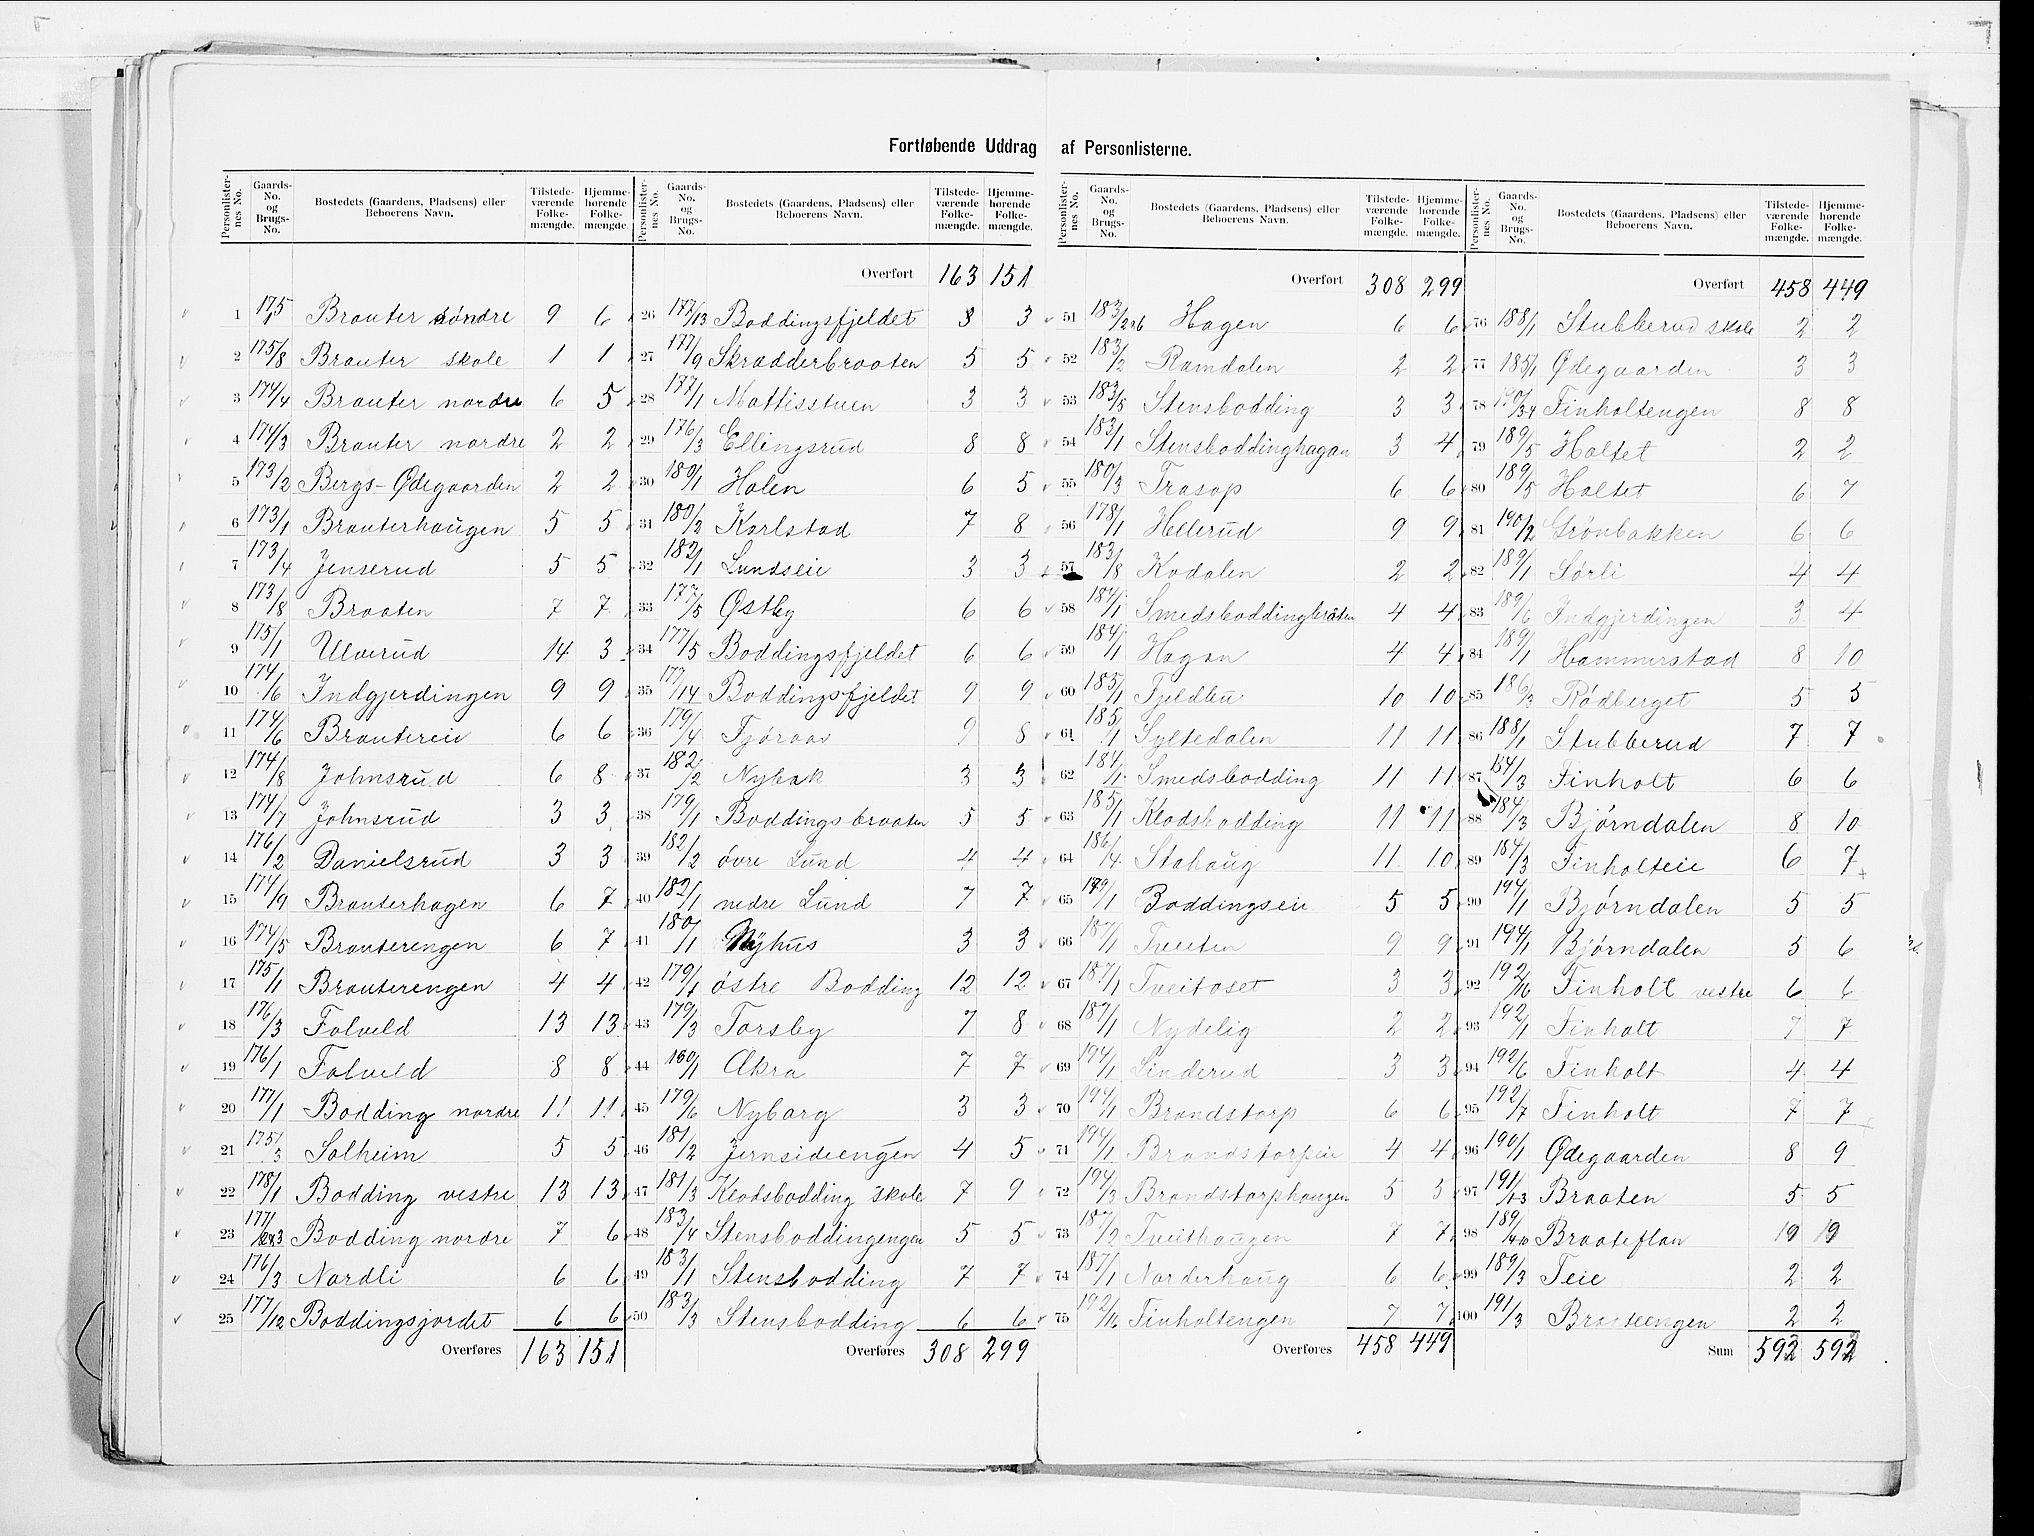 Fortløbende Uddrag af Personlisterne.
Personlisternes No. | Gaards-No. og Brugs-No. | Bostedets (Gaardens, Pladsens) eller Beboerens Navn. | Tilstedeværende Folkemængde. | Hjemmehørende Folkemængde.
1 175/1 Brauter søndre 9 6
2 175/8 Brauter skole 1 1
3 174/4 Brauter nordre 6 5
4 174/3 Brauter nordre 2 2
5 173/2 Bergs-Ødegaarden 2 2
6 173/1 Brauterhaugen 5 5
7 173/4 Jenserud 5 5
8 173/8 Braaten 7 7
9 175/1 Ulverud 14 3
10 174/6 Indgjerdingen 9 9
11 174/6 Brautereie 6 6
12 174/8 Johnsrud 6 8
13 174/7 Johnsrud 3 3
14 176/2 Danielsrud 3 3
15 174/9 Brauterhagen 6 7
16 174/5 Brauterengen 6 7
17 175/1 Brauterengen 4 4
18 176/3 Folveld 13 13
19 176/1 Folveld 8 8
20 177/1 Bodding nordre 11 11
21 175/3 Solheim 5 5
22 178/1 Bodding vestre 13 13
23 177/ Bodding nordre 7 6
24 176/3 Nordli 6 6
25 177/12 Boddingsjordet 6 6
Overføres 163 151
Personlisternes No. | Gaards-No. og Brugs-No. | Bostedets (Gaardens, Pladsens) eller Beboerens Navn. | Tilstedeværende Folkemængde. | Hjemmehørende Folkemængde.
Overført 163 151
26 177/13 Boddingsfjeldet 3 3
27 177/9 Skrædderbraaten 5 5
28 177/1 Mattisstuen 3 3
29 176/3 Ellingsrud 8 8
30 180/1 Holen 6 5
31 180/2 Karlstad 7 8
32 182/1 Lundseie 3 3
33 177/5 Østby 6 6
34 177/5 Boddingsfjeldet 6 6
35 177/14 Boddingsfjeldet 9 9
36 179/4 Fjøraas 9 8
37 182/2 Nybak 3 3
38 179/1 Boddingsbraaten 5 5
39 182/2 øvre Lund 4 4
40 182/1 nedre Lund 7 7
41 180/1 Nyhus 3 3
42 179/1 østre Bodding 12 12
43 179/3 Torsby 7 8
44 180/1 Akra 7 7
45 179/6 Nyborg 3 3
46 181/2 Jernsideengen 4 5
47 181/3 Klodsbodding skole 7 9
48 183/4 Stensboddingengen 5 5
49 183/1 Stensbodding 7 7
50 183/3 Stensbodding 6 6
Overføres 308 299
Personlisternes No. | Gaards-No. og Brugs-No. | Bostedets (Gaardens, Pladsens) eller Beboerens Navn. | Tilstedeværende Folkemængde. | Hjemmehørende Folkemængde.
Overført 308 299
51 183/2 Hagen 6 6
52 183/2 Ramdalen 2 2
53 183/5 Stensbodding 3 3
54 183/1 Stensboddinghagan 3 4
55 180/3 Trasop 6 6
56 178/1 Hellerud 9 9
57 183/8 Kodalen 2 2
58 184/1 Smedsboddingbråten 4 4
59 184/1 Hagan 4 4
60 185/1 Fjeldbu 10 10
61 185/1 Syltedalen 11 11
62 184/1 Smedsbodding 11 11
63 185/1 Klodsbodding 11 11
64 186/4 Stahaug 11 10
65 179/1 Boddingseie 5 5
66 187/1 Tveiten 9 9
67 187/1 Tveitaset 3 3
68 187/1 Nydelig 2 2
69 194/1 Linderud 3 3
70 194/1 Brandstorp 6 6
71 194/1 Brandstorpeie 4 4
72 194/3 Brandstorphaugen 5 5
73 187/2 Tveithaugen 7 7
74 187/1 Norderhaug 6 6
75 192/16 Finholtengen 7 7
Overføres 458 449
Personlisternes No. | Gaards-No. og Brugs-No. | Bostedets (Gaardens, Pladsens) eller Beboerens Navn. | Tilstedeværende Folkemængde. | Hjemmehørende Folkemængde.
Overført 458 449
76 188/1 Stubberud skole 2 2
77 185/1 Ødegaarden 3 3
78 Finholtengen 8 8
79 189/5 Holtet 2 2
80 189/5 Holtet 6 7
81 190/2 Grønbakken 6 6
82 189/1 Sørli 4 4
83 189/6 Indgjerdingen 3 4
84 189/1 Hammerstad 8 10
85 186/3 Rødberget 5 5
86 188/1 Stubberud 7 7
87 184/3 Finholt 6 6
88 184/3 Bjørndalen 8 10
89 184/3 Finholteie 6 7
90 194/1 Bjørndalen 5 5
91 194/1 Bjørndalen 5 6
92 192/16 Finholt vestre 6 6
93 192/1 Finholt 7 7
94 192/6 Finholt 4 4
95 192/7 Finholt 7 7
96 190/1 Ødegaarden 8 9
97 191/13 Braaten 5 5
98 189/ Braateflan 19 19
99 189/3 Teie 2 2
100 191/3 Braateengen 2 2
Sum 592 592